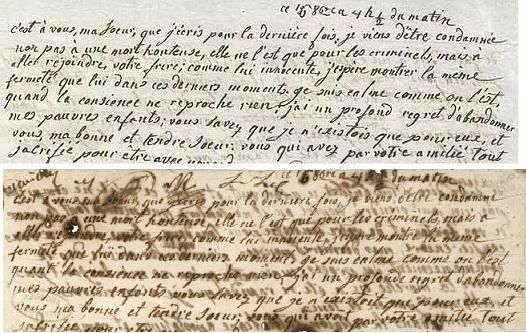 ce 8bre a 4 h ½ du matin
c'est à vous, ma soeur, que j'ecris pour la dernière fois, je viens d'être condamnée
non pas à une mort honteuse, elle ne l'est que pour les criminels, mais a
aller rejoindre votre frere; comme lui innocente, j'espère montrer la meme
fermeté que lui dans ces derniers moments. je suis calme comme on l'est,
quand la consience ne reproche rien; j'ai un profond regret d'abandonner
mes pauvres enfants; vous savez que je n'existois que pour eux, et
vous, ma bonne et tendre soeur: vous qui avez par votre amitié tout
sacrifié pour etre avec
ce 8bre a 4 h ½ du matin
c'est à vous, ma soeur, que j'ecris pour la derniere fois, je viens d'être condamnée
non pas a une mort honteuse, elle ne l'est que pour les criminels, mais a
comme lui innocente, j'espere montrer la meme
fermeté que lui dans ces derniers moments. je suis calme comme on l'est
quand la consience ne reproche rien, j'ai un profond regret d'abandonner
mes pauvres enfants vous savez que je n'existois que pour eux, et
vous ma bonne et tendre soeur, vous qui avez par votre amitié tout
sacrifié pour